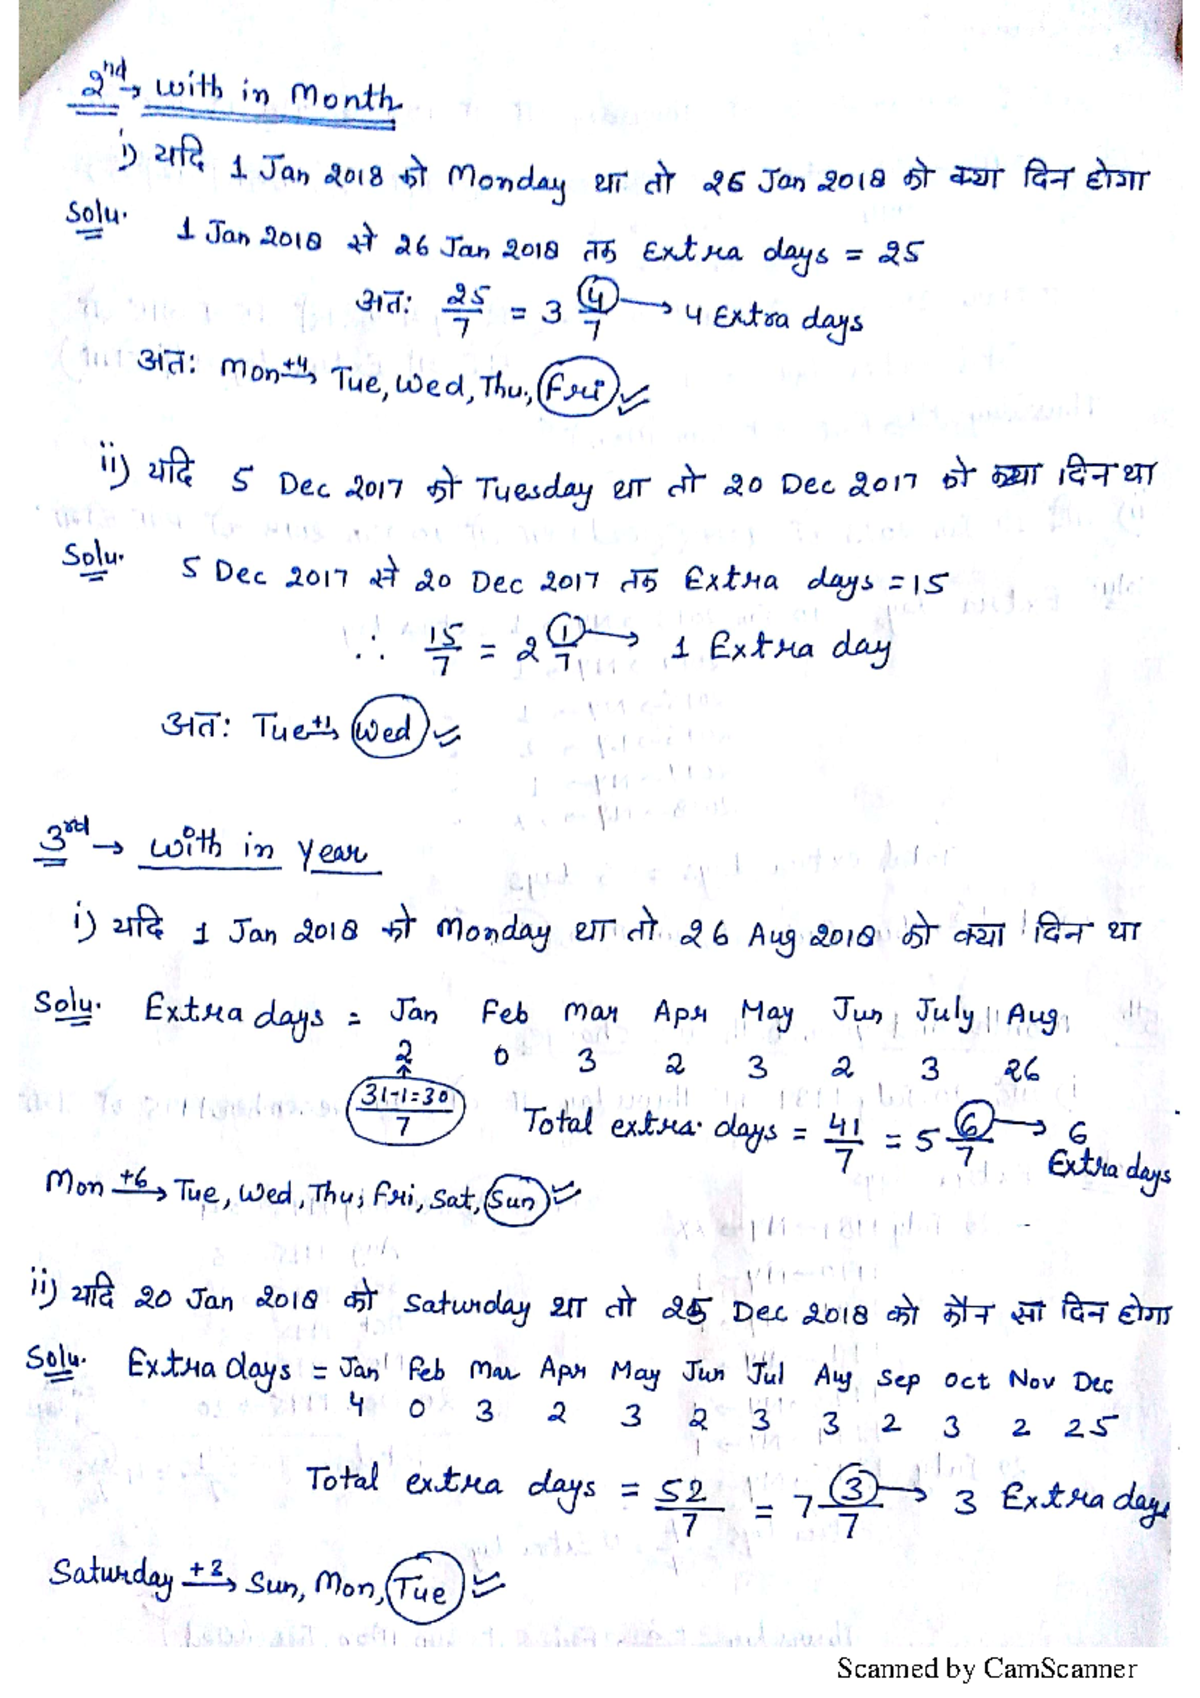 2nd → with in Month
i) यदि 1 Jan 2018 को Monday था तो 26 Jan 2018 को क्या दिन होगा
Solu. 1 Jan 2018 से 26 Jan 2018 तक Extra days = 25
अतः 25/7 = 3 4/7 → 4 Extra days
अतः Mon +4→ Tue, Wed, Thu, Fri
ii) यदि 5 Dec 2017 को Tuesday था तो 20 Dec 2017 को क्या दिन था
Solu. 5 Dec 2017 से 20 Dec 2017 तक Extra days = 15
∴ 15/7 = 2 1/7 → 1 Extra day
अतः Tue +1→ Wed
3rd → with in year
i) यदि 1 Jan 2018 को Monday था तो 26 Aug 2018 को क्या दिन था
Solu. Extra days = Jan Feb Mar Apr May Jun July Aug
2 0 3 2 3 2 3 26
31-1=30/7
Total extra days = 41/7 = 5 6/7 → 6 Extra days
Mon +6→ Tue, Wed, Thu, Fri, Sat, Sun
ii) यदि 20 Jan 2018 को Saturday था तो 25 Dec 2018 को कौन सा दिन होगा
Solu. Extra days = Jan Feb Mar Apr May Jun Jul Aug Sep Oct Nov Dec
4 0 3 2 3 2 3 3 2 3 2 25
Total extra days = 52/7 = 7 3/7 → 3 Extra days
Saturday +3→ Sun, Mon, Tue
Scanned by CamScanner